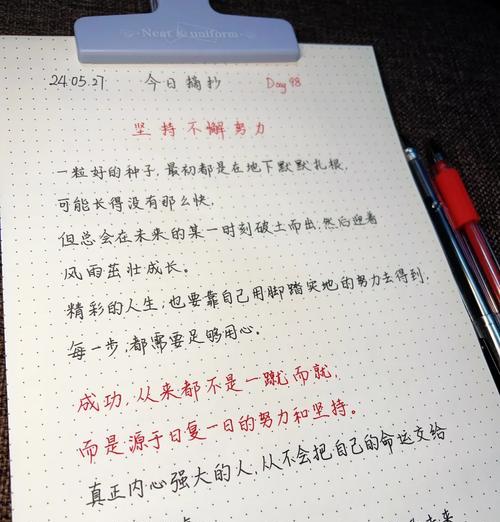 Neat & uniform
24.05.27 今日摘抄 Day 98
坚持不懈努力
一粒好的种子,最初都是在地下默默扎根,
可能长得没有那么快,
但总会在未来的某一时刻破土而出,然后迎着
风雨茁壮成长。
精彩的人生,也要靠自己用脚踏实地的努力去得到,
每一步,都需要足够用心。
成功,从来都不是一蹴而就,
而是源于日复一日的努力和坚持。
真正内心强大的人,从不会把自己的命运交给